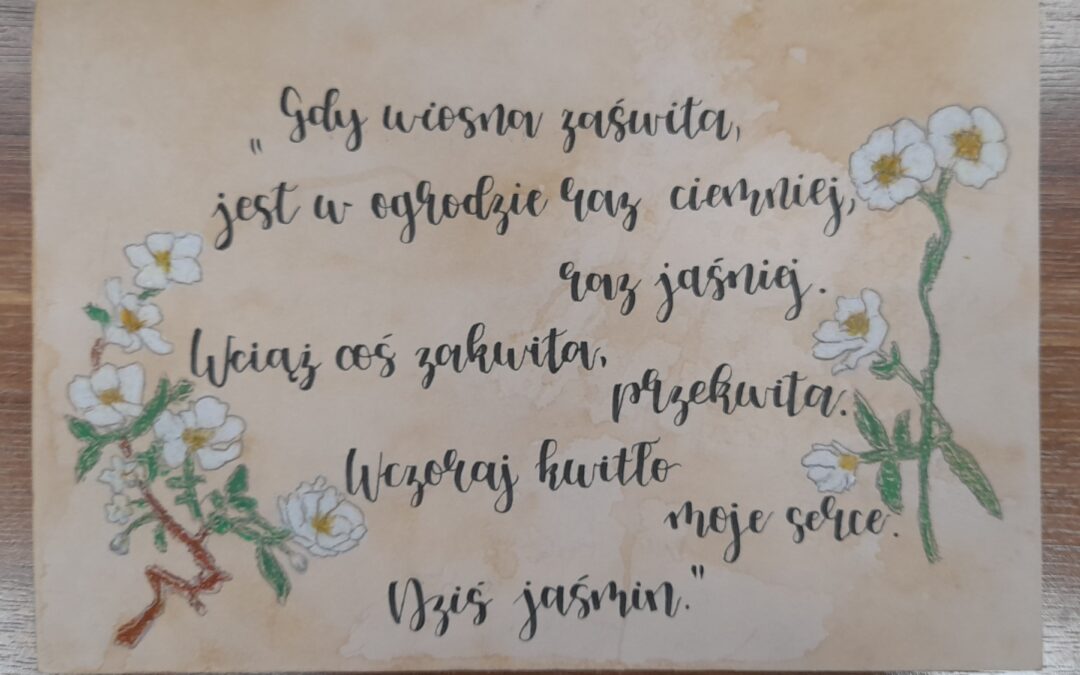 „Gdy wiosna zaświta,
jest w ogrodzie raz ciemniej,
raz jaśniej.
Wciąż coś zakwita,
przekwita.
Wczoraj kwitło
moje serce.
Dziś jaśmin."